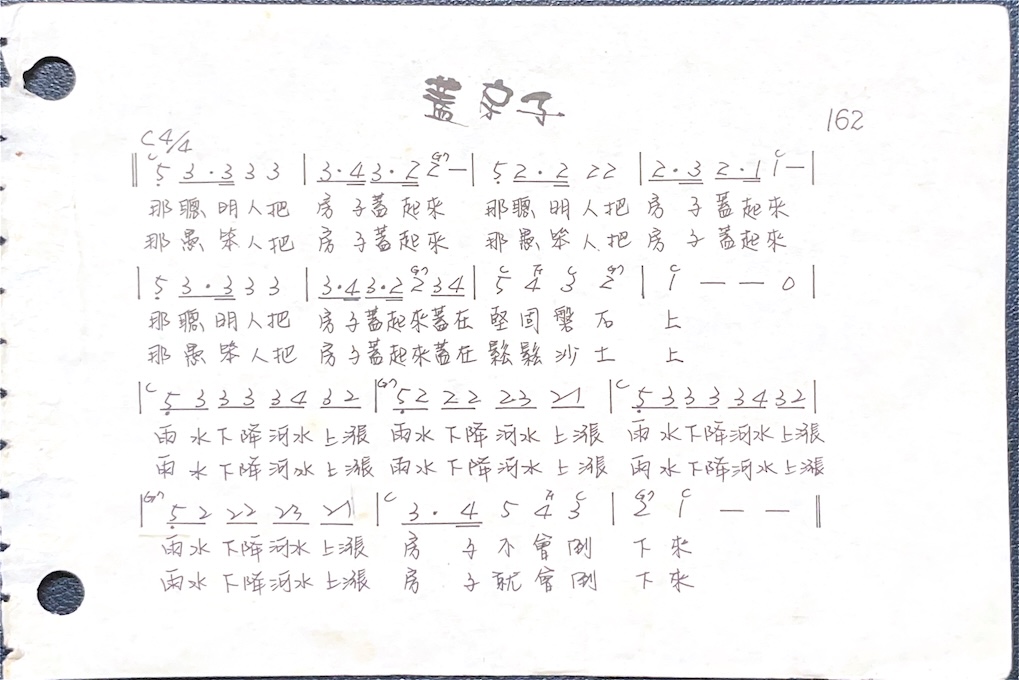 蓋房子
162
C 4/4
C G7 C
‖ 5̣ 3·3 3 3 | 3·4 3·2 2 — | 5̣ 2·2 2 2 | 2·3 2·1 1 — |
那聰明人把 房子蓋起來 那聰明人把 房子蓋起來
那愚笨人把 房子蓋起來 那愚笨人把 房子蓋起來
G7 C F C G7 C
| 5̣ 3·3 3 3 | 3·4 3·2 2 3 4 | 5 4 3 2 | 1 — — 0 |
那聰明人把 房子蓋起來蓋在 堅固磐石 上
那愚笨人把 房子蓋起來蓋在 鬆鬆沙土 上
C G7 C
| 5̣ 3 3 3 3 4 3 2 | 5̣ 2 2 2 2 3 2 1 | 5̣ 3 3 3 3 4 3 2 |
雨水下降河水上漲 雨水下降河水上漲 雨水下降河水上漲
雨水下降河水上漲 雨水下降河水上漲 雨水下降河水上漲
G7 C F C G7 C
| 5̣ 2 2 2 2 3 2 1 | 3·4 5 4 3 | 2 1 — — ‖
雨水下降河水上漲 房子不會倒 下來
雨水下降河水上漲 房子就會倒 下來